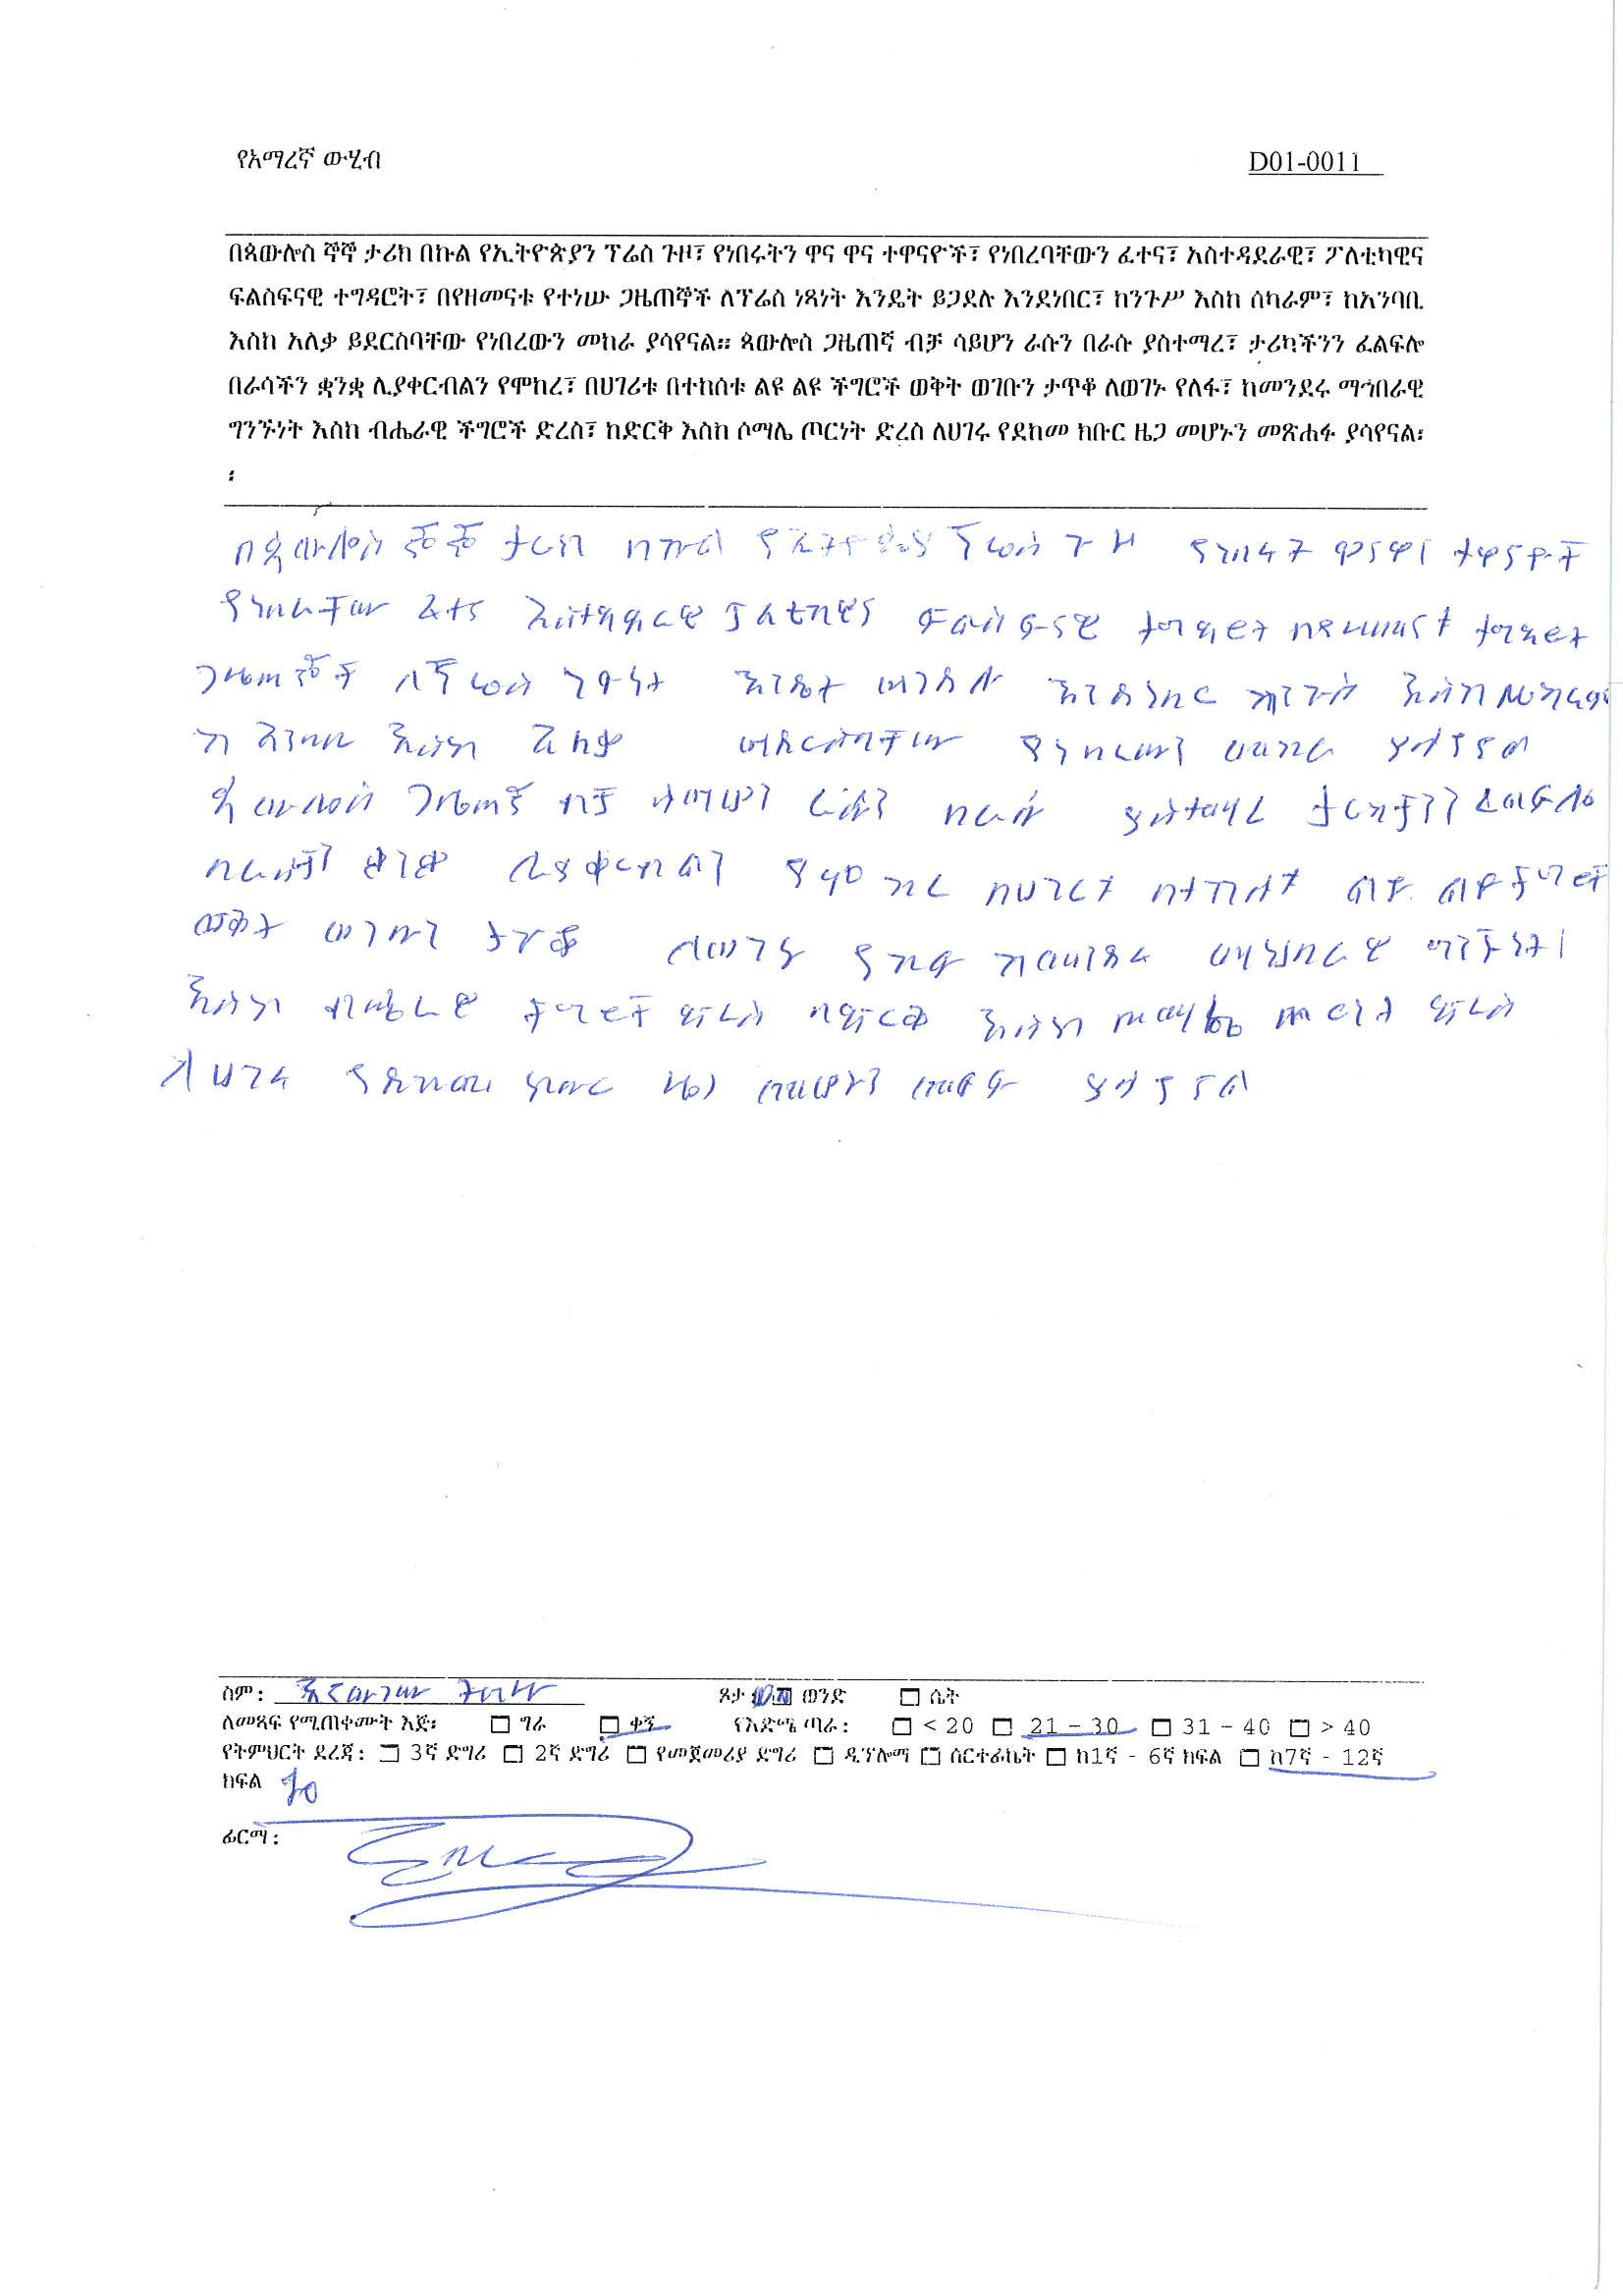 የአማረኛ ውሂብ D01-0011
በጳውሎስ ኞኞ ታሪክ በኩል የኢትዮጵያን ፕሬስ ጉዞ፣ የነበሩትን ዋና ዋና ተዋናዮች፣ የነበረባቸውን ፈተና፣ አስተዳደራዊ፣ ፖለቲካዊና
ፍልስፍናዊ ተግዳሮት፣ በየዘመናቱ የተነሡ ጋዜጠኞች ለፕሬስ ነጻነት እንዴት ይጋደሉ እንደነበር፣ ከንጉሥ እስከ ሰካራም፣ ከአንባቢ
እስከ አለቃ ይደርስባቸው የነበረውን መከራ ያሳየናል። ጳውሎስ ጋዜጠኛ ብቻ ሳይሆን ራሱን በራሱ ያስተማረ፣ ታሪካችንን ፈልፍሎ
በራሳችን ቋንቋ ሊያቀርብልን የሞከረ፣ በሀገሪቱ በተከሰቱ ልዩ ልዩ ችግሮች ወቅት ወገቡን ታጥቆ ለወገኑ የለፋ፣ ከመንደሩ ማኅበራዊ
ግንኙነት እስከ ብሔራዊ ችግሮች ድረስ፣ ከድርቅ እስከ ሶማሌ ጦርነት ድረስ ለሀገሩ የደከመ ክቡር ዜጋ መሆኑን መጽሐፉ ያሳየናል፡
፡
በጳውሎስ ኞኞ ታሪክ በኩል የኢትዮጵያን ፕሬስ ጉዞ የነበሩት ዋና ዋና ተዋናዮች
የነበራቸው ፈተና አስተዳደራዊ ፖለቲካዊና ፍልስፍናዊ ተግዳሮት በየዘመናት
ጋዜጠኞች ለፕሬስ ነፃነት እንዴት ይጋደሉ እንደነበር ከንጉስ እስከ
ከ አንባቢ እስከ አለቃ ይደርስባቸው የነበረውን መከራ ያሳየናል
ጳውሎስ ጋዜጠኛ ብቻ ሳይሆን ራሱን በራሱ ያስተማረ ታሪካችንን ፈልፍሎ
በራሳችን ቋንቋ ሊያቀርብልን የሞከረ በሀገሪቱ በተከሰቱ ልዩ ልዩ ችግሮች
ወቅት ወገቡን ታጥቆ ለወገኑ የለፋ ከመንደሩ ማህበራዊ ግንኙነት
እስከ ብሔራዊ ችግሮች ድረስ ከድርቅ እስከ ሶማሌ ጦርነት ድረስ
ለሀገሩ የደከመ ክቡር ዜጋ መሆኑን መፅሐፉ ያሳየናል
ስም: ጾታ: ወንድ ሴት
ለመጻፍ የሚጠቀሙት እጅ፡ ግራ ቀኝ የእድሜ ጣራ: < 20 21 – 30 31 – 40 > 40
የትምህርት ደረጃ: 3ኛ ድግሪ 2ኛ ድግሪ የመጀመሪያ ድግሪ ዲፕሎማ ሰርተፊኬት ከ1ኛ - 6ኛ ክፍል ከ7ኛ - 12ኛ
ክፍል 10
ፊርማ: